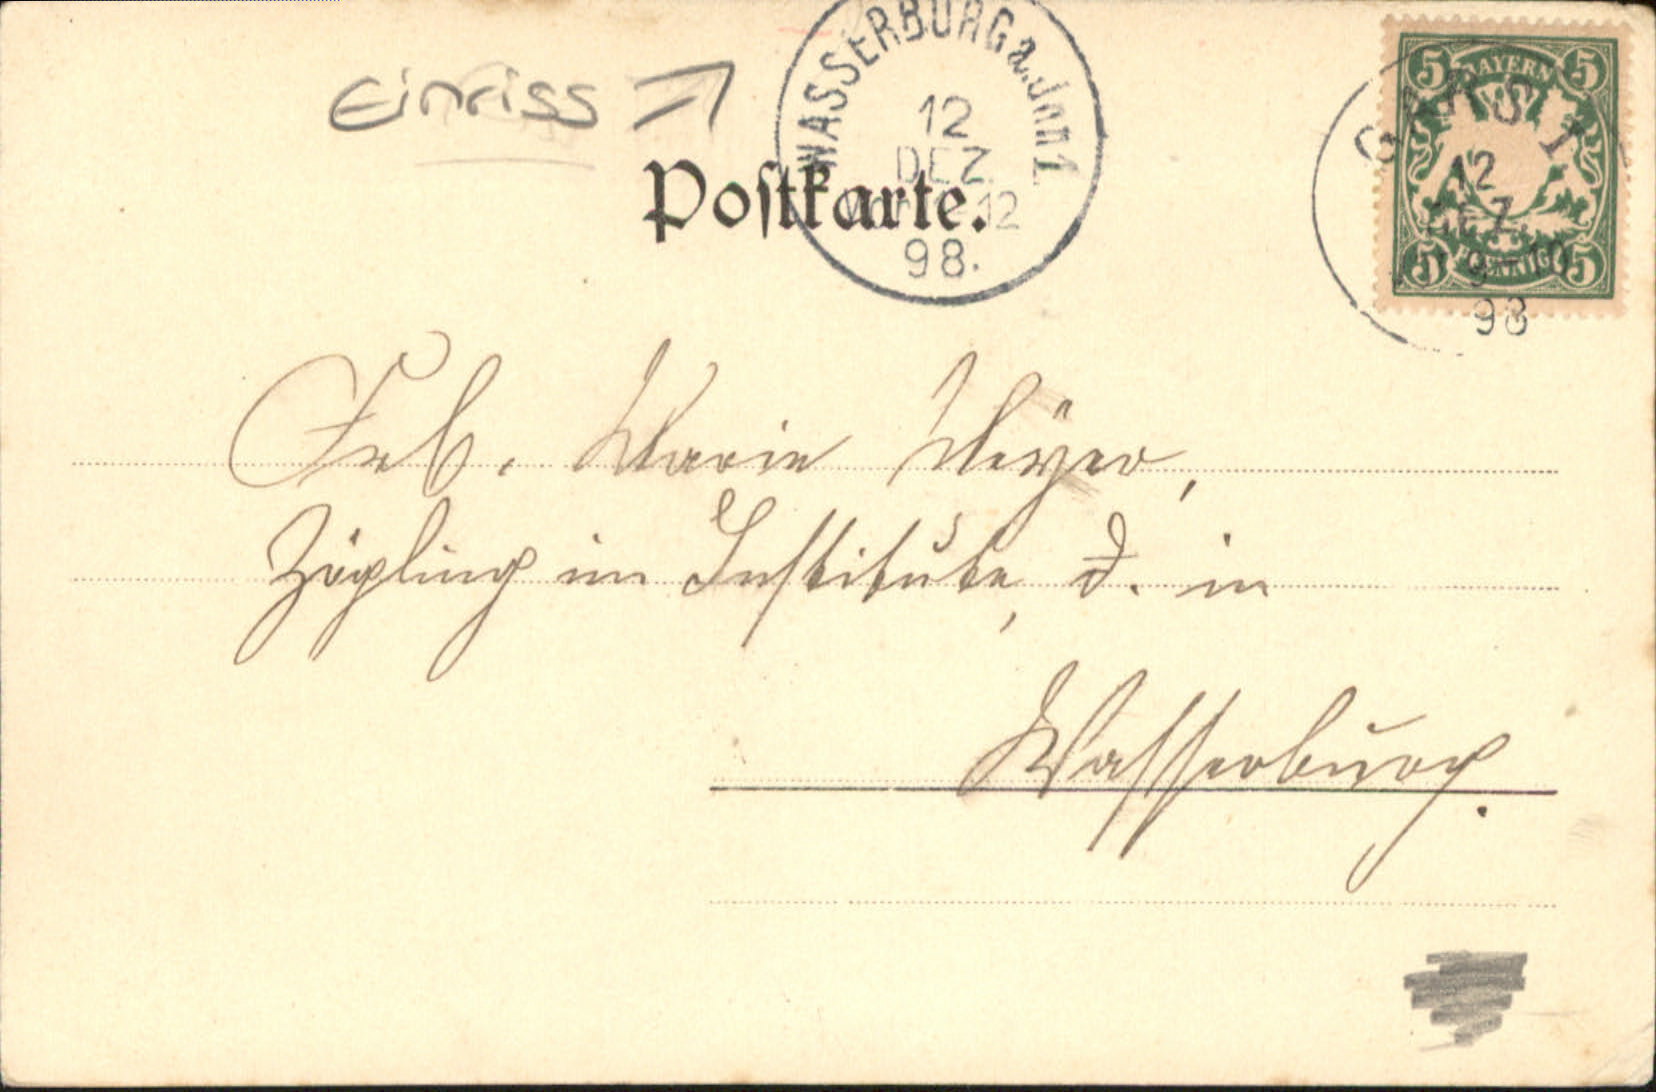 Einriss
WASSERBURG a. Inn 1
12
DEZ.
12
98.
Postkarte.
GARS I
12
DEZ.
98
5 BAYERN 5
5 PFENNIG 5
Frl. Marie Meyer,
Zögling im Institute, d. in
Wasserburg.